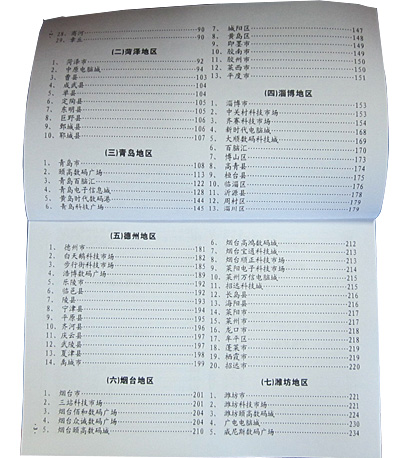 28. 商河 90
29. 章丘 90
(二)菏泽地区
1. 菏泽市 92
2. 中原电脑城 94
3. 曹县 103
4. 成武县 104
5. 单县 104
6. 定陶县 105
7. 东明县 105
8. 巨野县 106
9. 鄄城县 106
10. 郓城县 107
(三)青岛地区
1. 青岛市 108
2. 颐高数码广场 113
3. 青岛百脑汇 122
4. 青岛电子信息城 128
5. 黄岛时代数码港 144
6. 青岛科技广场 145
7. 城阳区 147
8. 黄岛区 148
9. 即墨市 149
10. 胶南市 149
11. 胶州市 150
12. 莱西市 151
13. 平度市 151
(四)淄博地区
1. 淄博市 153
2. 中关村科技市场 153
3. 齐赛科技市场 154
4. 新时代电脑城 168
5. 大顺数码科技城 169
6. 百脑汇 170
7. 博山区 173
8. 高青县 174
9. 桓台县 175
10. 临淄区 176
11. 沂源县 178
12. 周村区 179
13. 淄川区 179
(五)德州地区
1. 德州市 181
2. 白天鹅科技市场 182
3. 步行街科技市场 185
4. 浩博数码广场 189
5. 乐陵市 192
6. 临邑县 192
7. 陵县 193
8. 宁津县 194
9. 平原县 195
10. 齐河县 196
11. 庆云县 197
12. 武城县 197
13. 夏津县 198
14. 禹城市 199
(六)烟台地区
1. 烟台市 201
2. 三站科技市场 202
3. 烟台佰和数码广场 204
4. 烟台众诚数码广场 204
5. 烟台颐高数码城 210
6. 烟台高鸿数码城 212
7. 烟台宝通科技城 213
8. 烟台颐正科技市场 213
9. 莱阳电子科技市场 214
10. 莱州万信电脑城 215
11. 招远科技城 215
12. 长岛县 216
13. 海阳县 216
14. 莱阳市 217
15. 莱州市 217
16. 龙口市 218
17. 牟平区 218
18. 蓬莱市 219
19. 栖霞市 219
20. 招远市 220
(七)潍坊地区
1. 潍坊市 221
2. 潍坊科技市场 221
3. 潍坊颐高数码城 224
4. 广电电脑城 230
5. 威尼斯数码广场 234